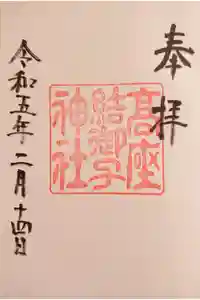 奉拝
高座
結御子
神社
令和五年二月十四日